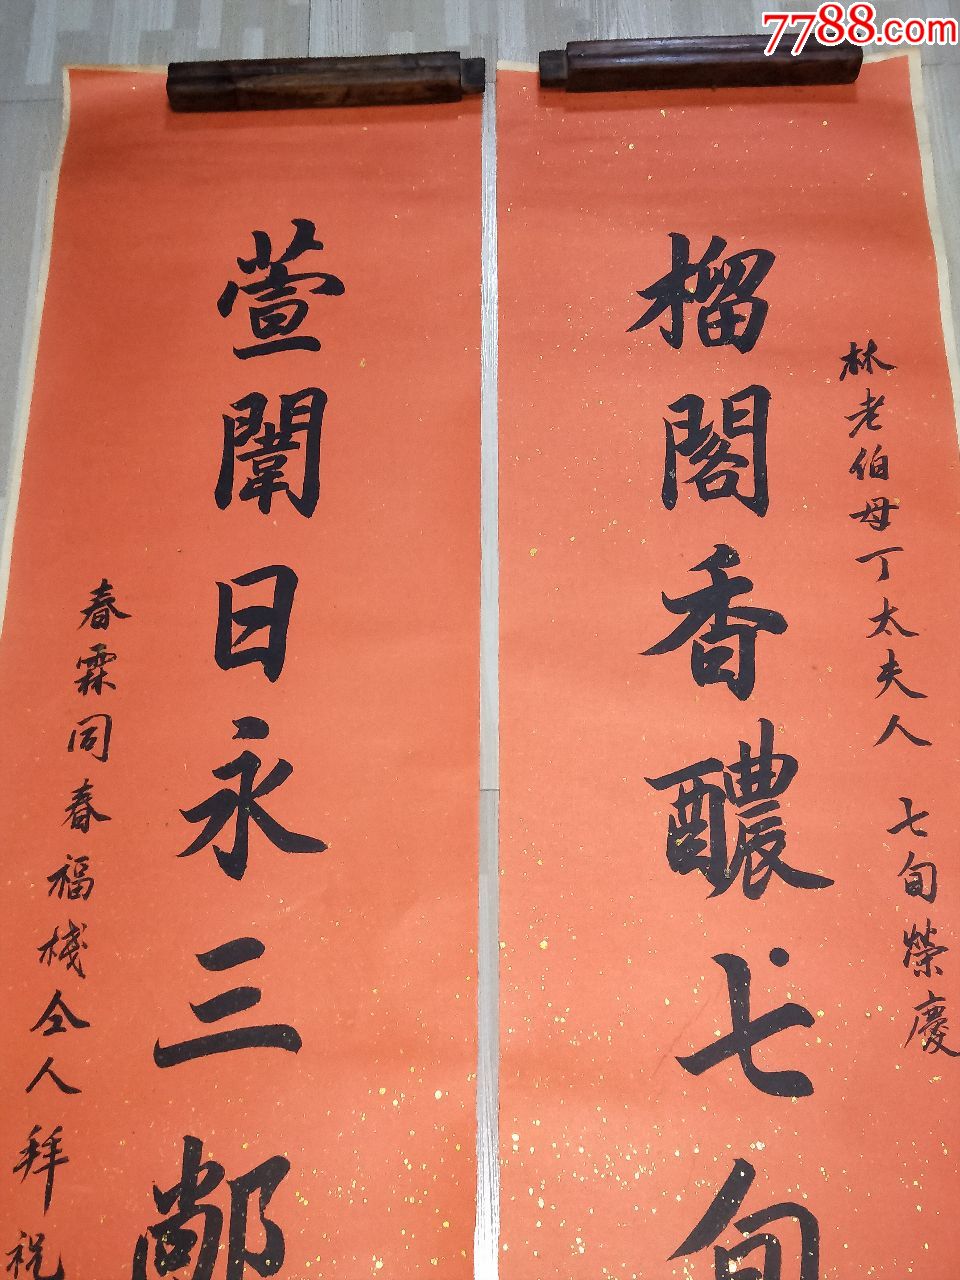 7788.com
林老伯母丁太夫人 七旬榮慶
榴閣香醲七旬
萱闈日永三鄰
春霖同春福棧仝人拜祝